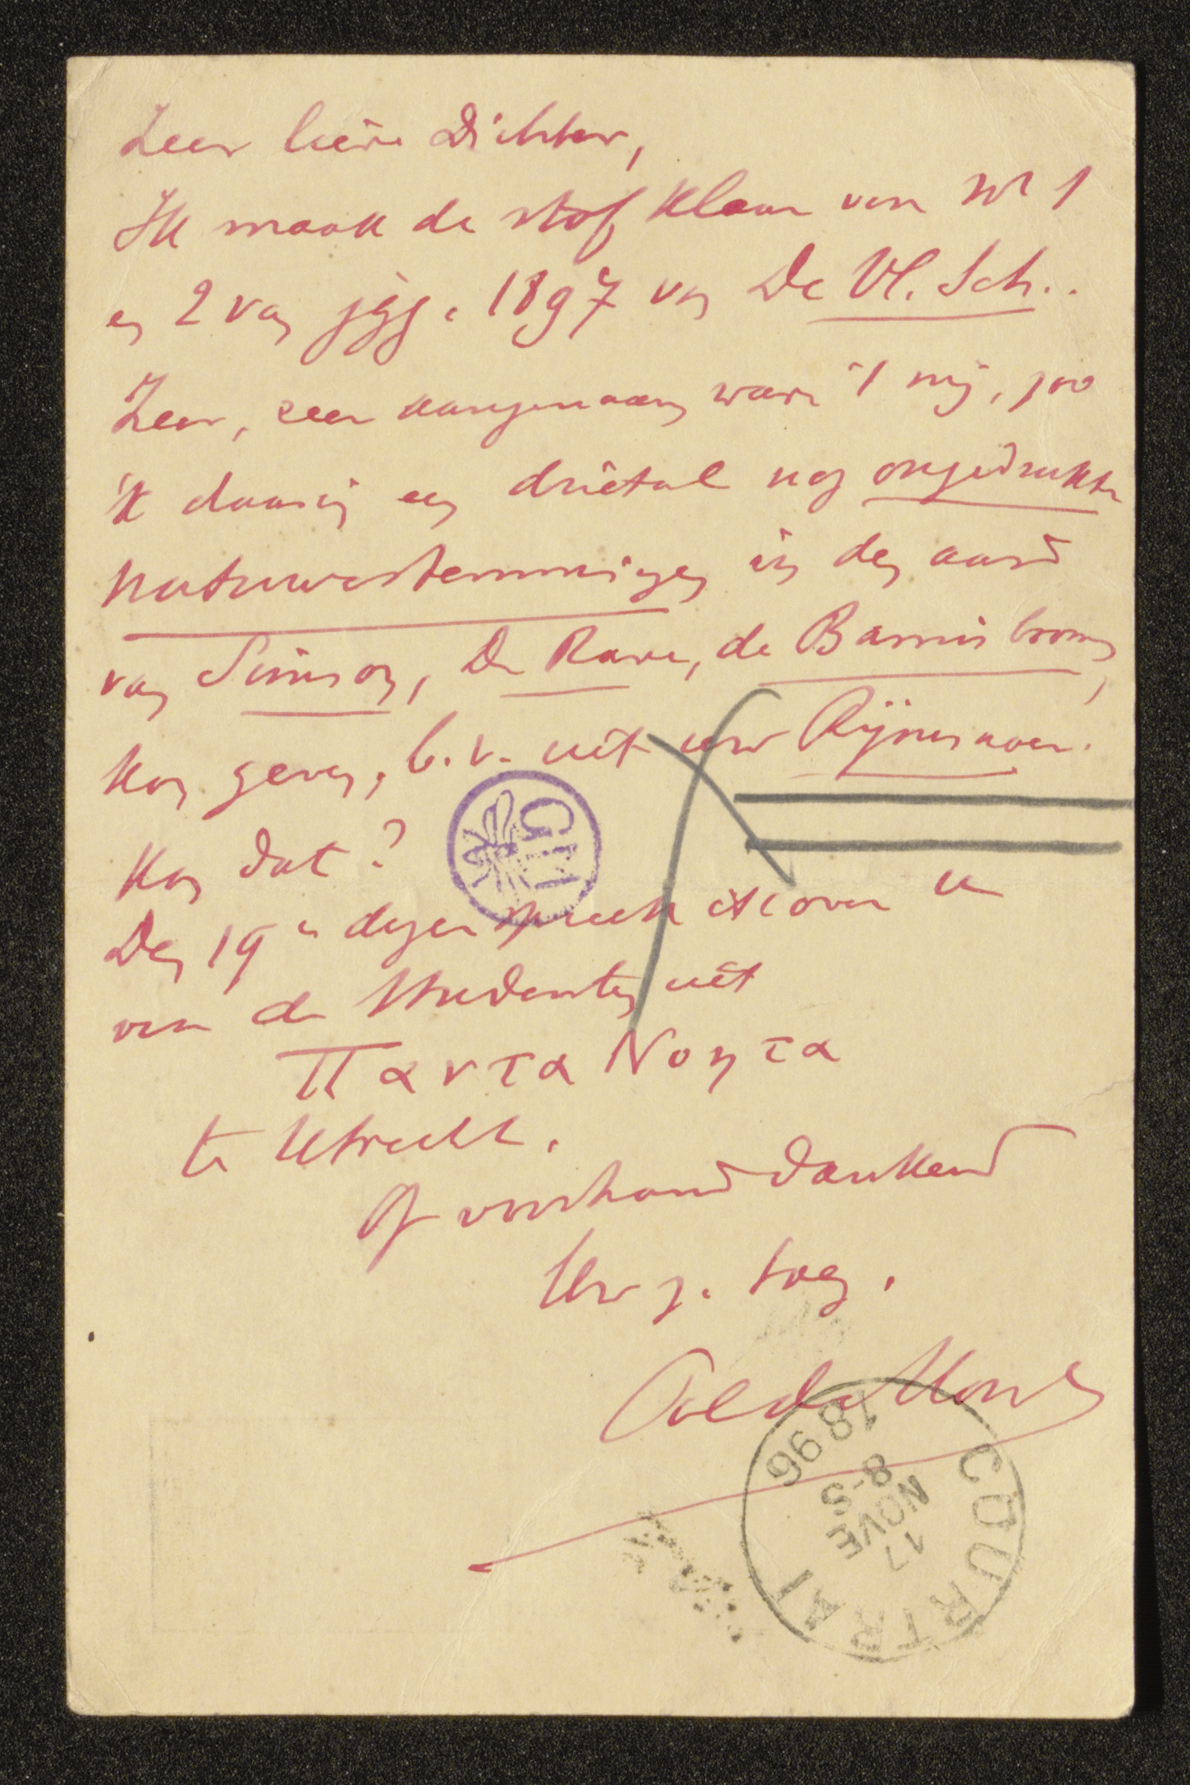 Zeer lieve Dichter,
Ik maak de stof klaar van Nr 1
en 2 van jgg. 1897 van De Vl. Sch..
Zeer, zeer aangenaam ware 't mij, zoo
'k daarin een drietal nog ongedrukte
natuurstemmingen in den aard
van Simson, De Rave, de Bamisbomen,
kon geven, b.v. uit uw Rijmsnoer.
Kan dat?
Den 19n dezer spreek ik over U
voor de Studenten uit
Παντα Νοητα
te Utrecht.
Op voorhand dankend
Uw z. toeg.
Pol de Mont
GM
COURTRAI
17
NOVE
8-S
1896